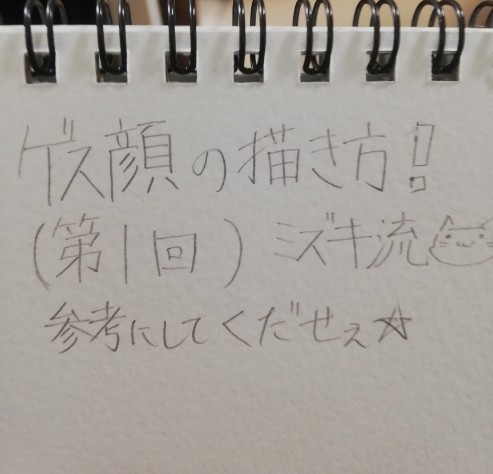 ゲス顔の描き方!
(第1回)ミズキ流
参考にしてくだせぇ☆